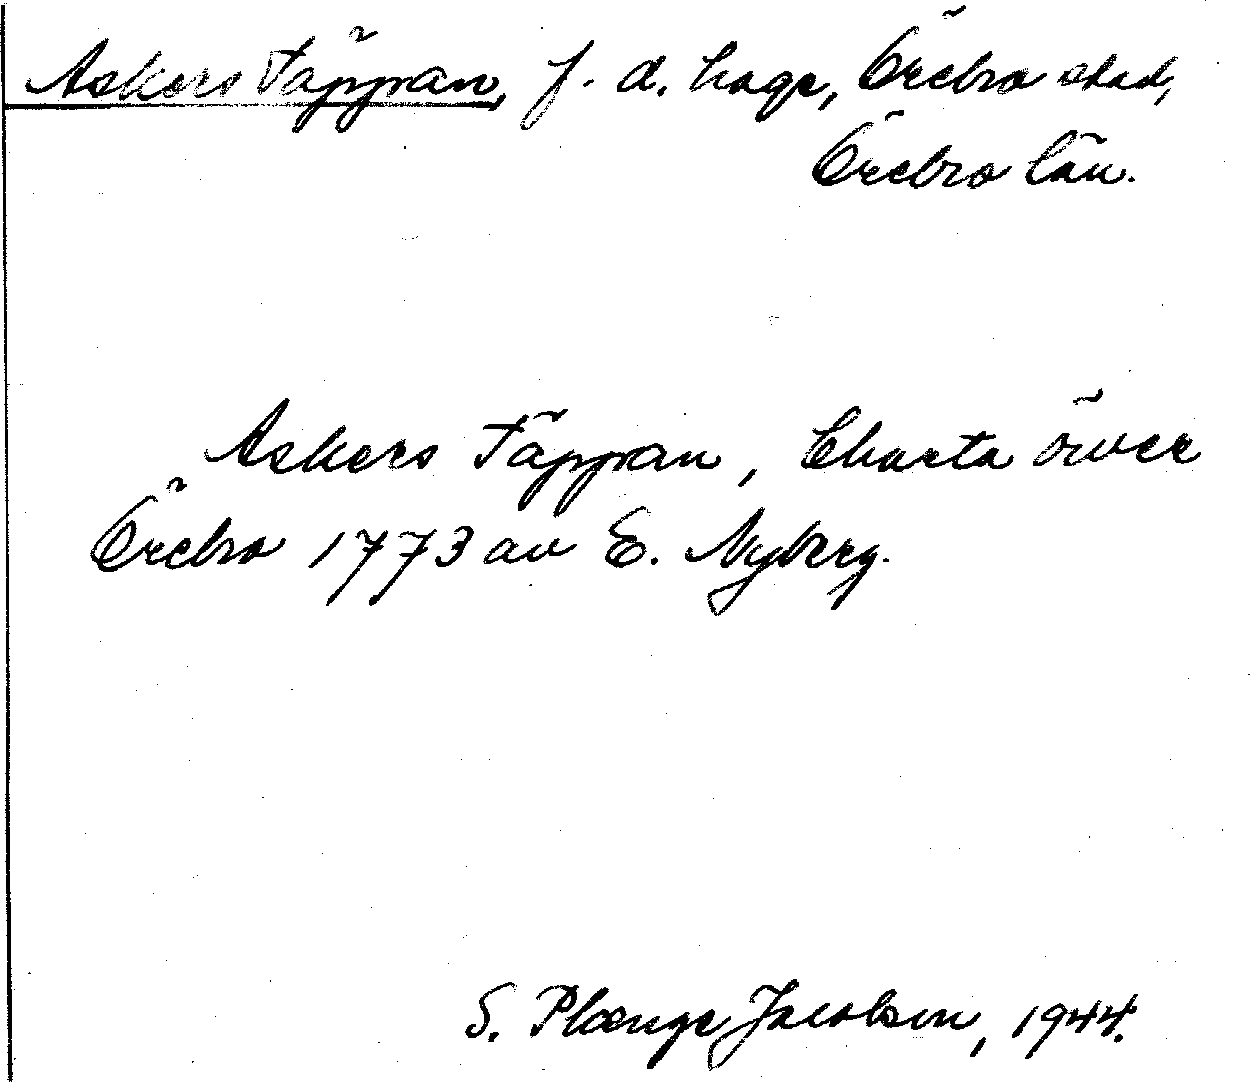 Askers Täppan, f. d. hage, Örebro stad,
Örebro län.
Askers Täppan, Charta öwer
Örebro 1773 av E. Nyberg.
S. Plænge Jacobson, 1944.